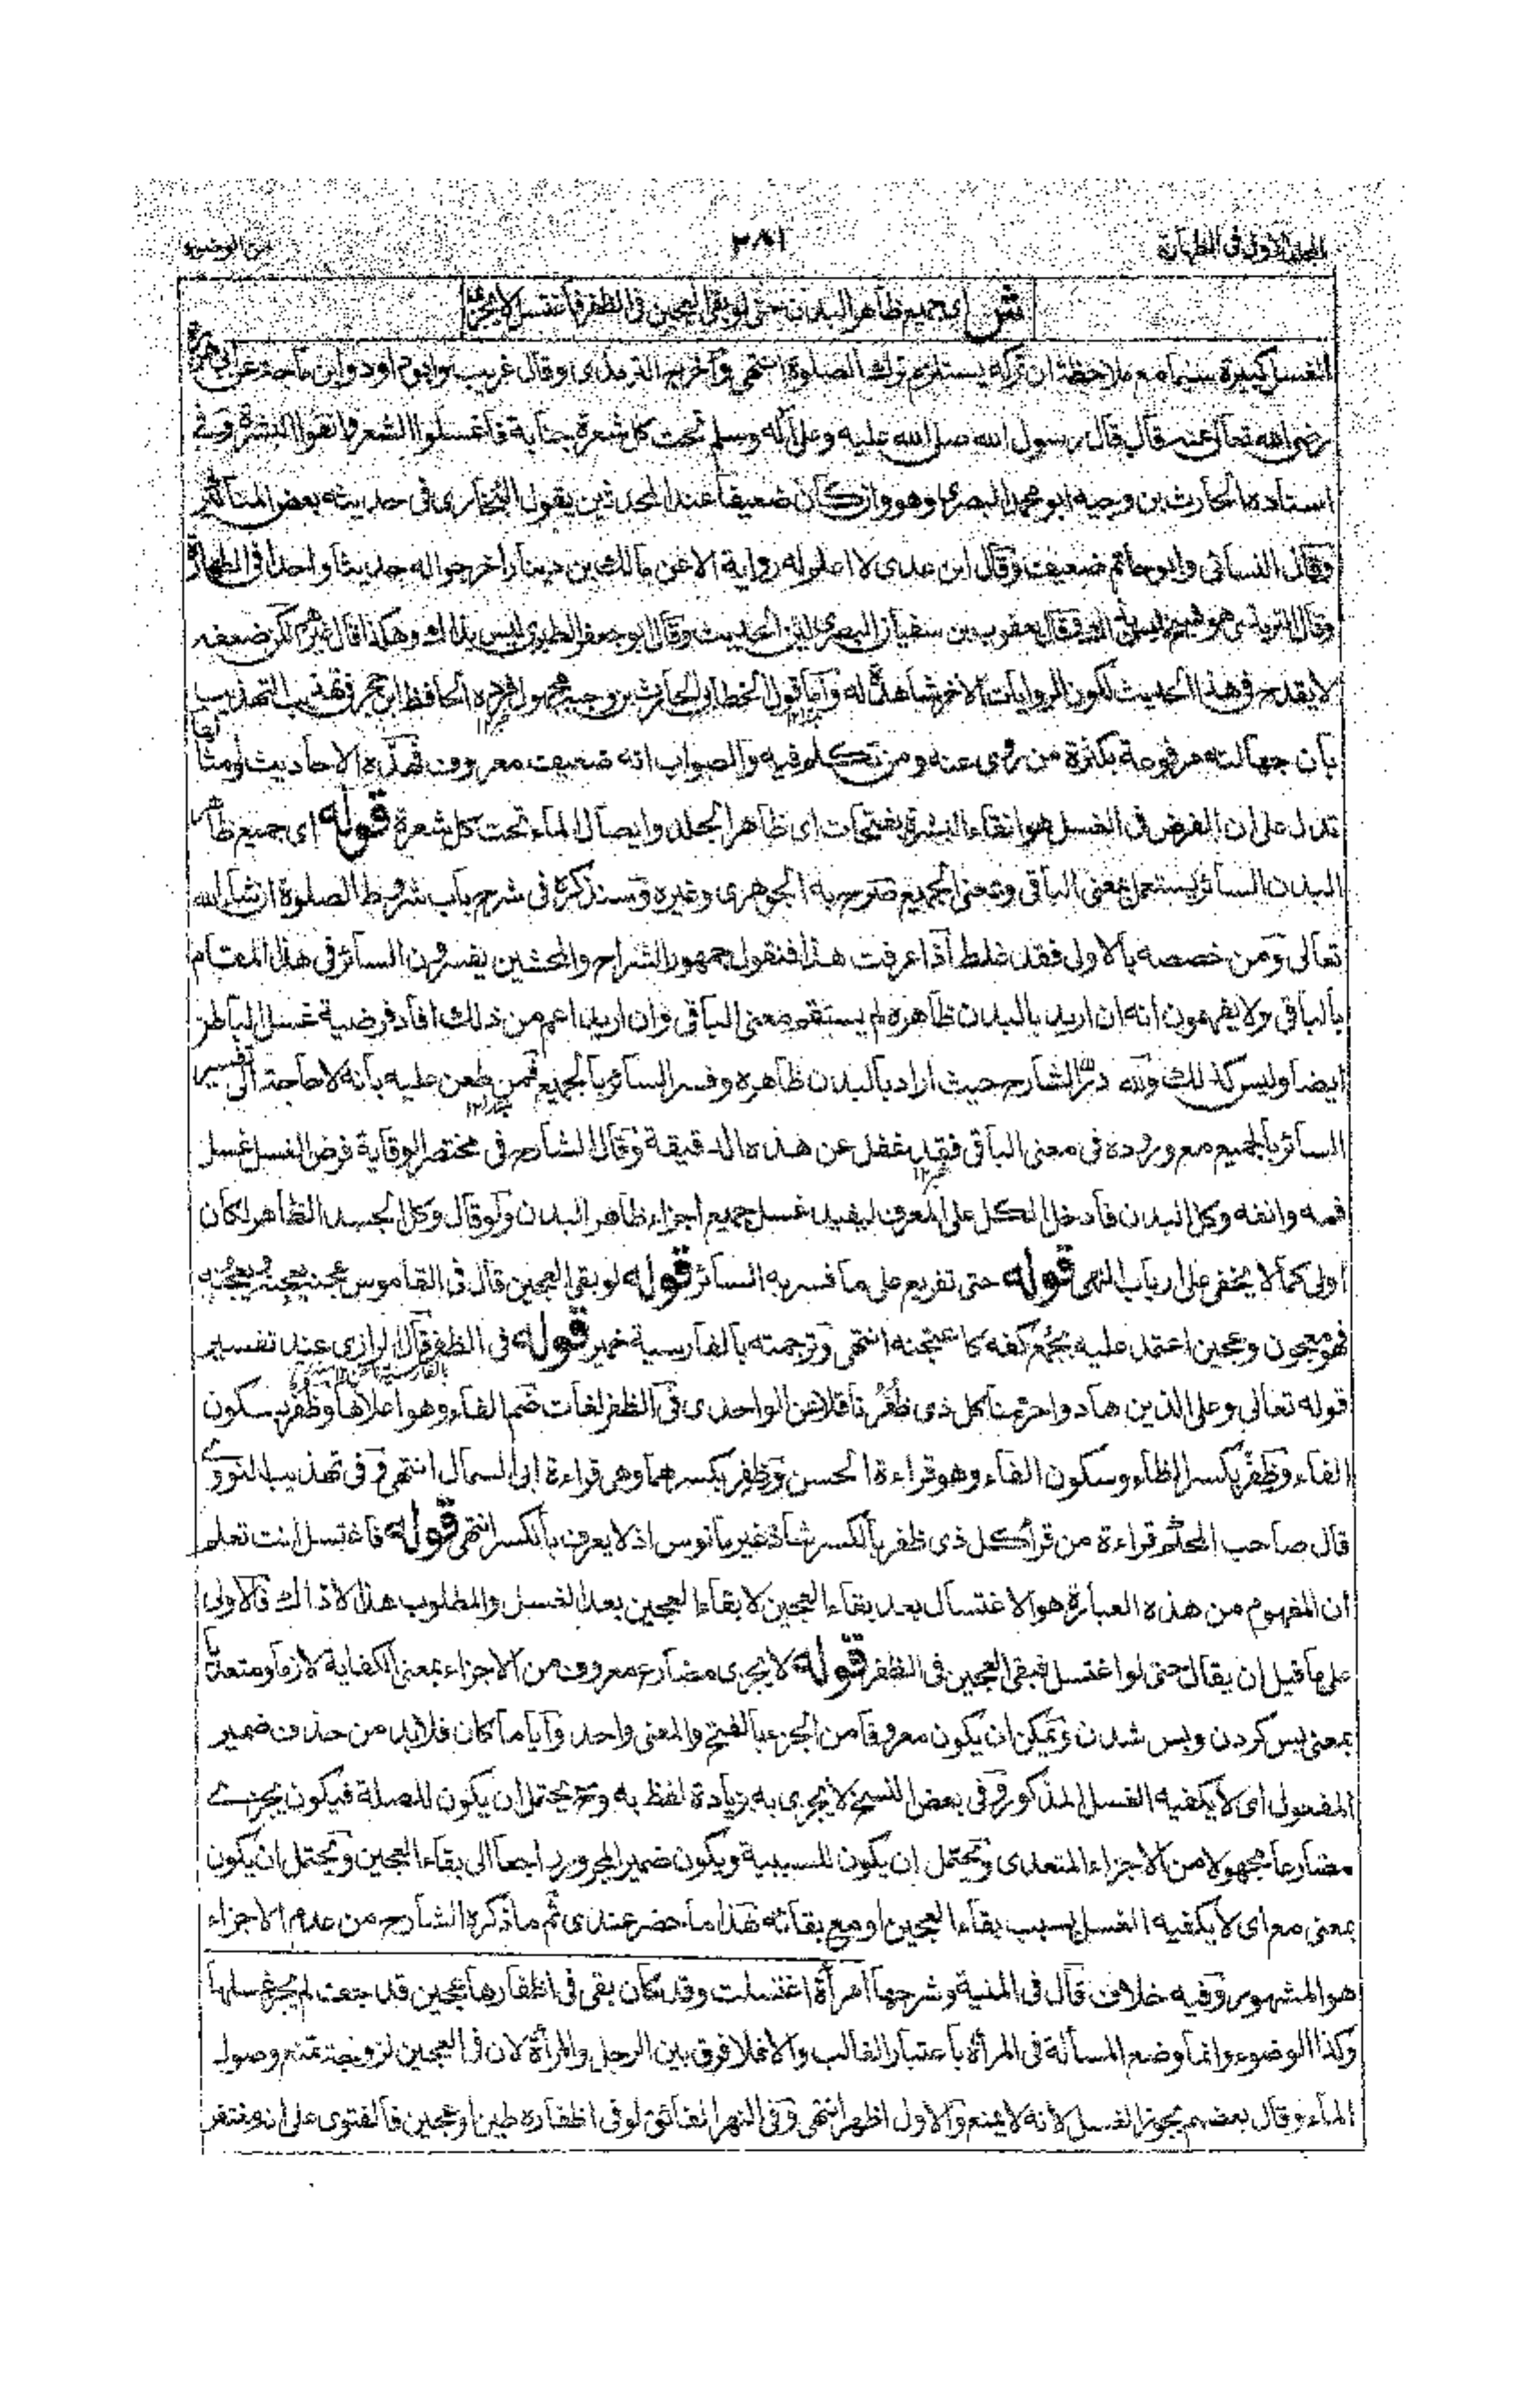 المجلد الاول فى الطهارة
٢٨١
من الوضوء
ش اى جميع ظاهر البدن حتى لو بقى العجين فى الظفر فاغتسل لا يجزئ
الغسل كبيرة سيما مع ملاحظة ان تركه يستلزم ترك الصلوة انتهى وآخرج الترمذى وقال غريب وابوداود وابن ماجة عن ابى هريرة
رضى الله تعالى عنه قال قال رسول الله صلى الله عليه وعلى آله وسلم تحت كل شعرة جنابة فاغسلوا الشعر وانقوا البشرة وفى
اسناده الحارث بن وجيه ابو محمد البصرى وهو وان كان ضعيفا عند المحدثين يقول البخارى فى حديثه بعض المناكير
وقال النسائى وابو حاتم ضعيف وقال ابن عدى لا اعلم له رواية الا عن مالك بن دينار اخرجوا له حديثا واحدا فى الطهارة
وقال الترمذى هو شيخ ليس بذاك وقال يعقوب بن سفيان البصرى لين الحديث وقال ابو جعفر الطبرى ليس بذاك وهكذا قال غيرهم لكن ضعفه
لا يقدح فى هذا الحديث لكون الروايات الاخر شاهدة له وآما قول الخطابى الحارث بن وجيه مجهول فرده الحافظ ابن حجر فى تهذيب التهذيب
بان جهالته مرفوعة بكثرة من روى عنه ومن تكلم فيه والصواب انه ضعيف معروف فهذه الاحاديث وامثالها
تدل على ان الفرض فى الغسل هو انقاء البشرة بفتحات اى ظاهر الجلد وايصال الماء تحت كل شعرة قوله اى جميع ظاهر
البدن السائر يستعمل بمعنى الباقى وبمعنى الجميع صرح به الجوهرى وغيره وسنذكره فى شرح باب شروط الصلوة ان شاء الله
تعالى ومن خصصه بالاولى فقد غلط آذا عرفت هذا فنقول جمهور الشراح والمحشين يفسرون السائر فى هذا المقام
بالباقى ولا يفهمون انه ان اريد بالبدن ظاهره لم يستقم معنى الباقى وان اريد اعم من ذلك افاد فرضية غسل الباطن
ايضا وليس كذلك ولله در الشارح حيث اراد بالبدن ظاهره وفسر السائر بالجميع فمن طعن عليه بانه لا حاجة الى تفسير
السائر بالجميع مع وروده فى معنى الباقى فقد غفل عن هذه الدقيقة وقال الشارح فى مختصر الوقاية فرض الغسل غسل
فمه وانفه وكل البدن فادخل الكل على المعرف ليفيد غسل جميع اجزاء ظاهر البدن ولو قال وكل الجسد الظاهر لكان
اولى كما لا يخفى على ارباب النهى قوله حتى تفريع على ما فسر به السائر قوله لو بقى العجين قال فى القاموس عجنه يعجنه ويعجنه
فهو معجون وعجين اعتمد عليه بجمع كفه كاعتجنه انتهى وترجمته بالفارسية خمير قوله فى الظفر قال الرازى عند تفسير
قوله تعالى وعلى الذين هادوا حرمنا كل ذى ظُفُر ناقلا عن الواحدى فى الظفر لغات ضم الفاء وهو اعلاها وظُفْر بسكون
الفاء وظِفْر بكسر الظاء وسكون الفاء وهو قراءة الحسن وظِفِر بكسرهما وهى قراءة ابى السمال انتهى وفى تهذيب النووى
قال صاحب المحكم قراءة من قرأ كل ذى ظفر بالكسر شاذ غير مانوس اذ لا يعرف بالكسر انتهى قوله فاغتسل انت تعلم
ان المفهوم من هذه العبارة هو الاغتسال بعد بقاء العجين لا بقاء العجين بعد الغسل والمطلوب هذا لا ذاك فالاولى
على ما قيل ان يقال حتى لو اغتسل فبقى العجين فى الظفر قوله لا يجزى مضارع معروف من الاجزاء بمعنى الكفاية لازما ومتعديا
بمعنى بس كردن وبس شدن ويمكن ان يكون معروفا من الجزء بالفتح والمعنى واحد وآيا ما كان فلا بد من حذف ضمير
المفعول اى لا يكفيه الغسل المذكور وفى بعض النسخ لا يجزى به بزيادة لفظ به وح يحتمل ان يكون للصلة فيكون يجزى
مضارعا مجهولا من الاجزاء المتعدى ويحتمل ان يكون للسببية ويكون ضمير المجرور راجعا الى بقاء العجين ويحتمل ان يكون
بمعنى مع اى لا يكفيه الغسل بسبب بقاء العجين او مع بقائه هذا ما حضر عندى ثم ما ذكره الشارح من عدم الاجزاء
هو المشهور وفيه خلاف قال فى المنية وشرحها امرأة اغتسلت وقد كان بقى فى اظفارها عجين قد جف لم يجز غسلها
وكذا الوضوء وانما وضع المسألة فى المرأة باعتبار الغالب والا فلا فرق بين الرجل والمرأة لان فى العجين لزوجة تمنع وصول
الماء وقال بعضهم يجوز الغسل لانه لا يمنع والاول اظهر انتهى وفى النهر الفائق لو فى اظفاره طين او عجين فالفتوى على انه مغتفر